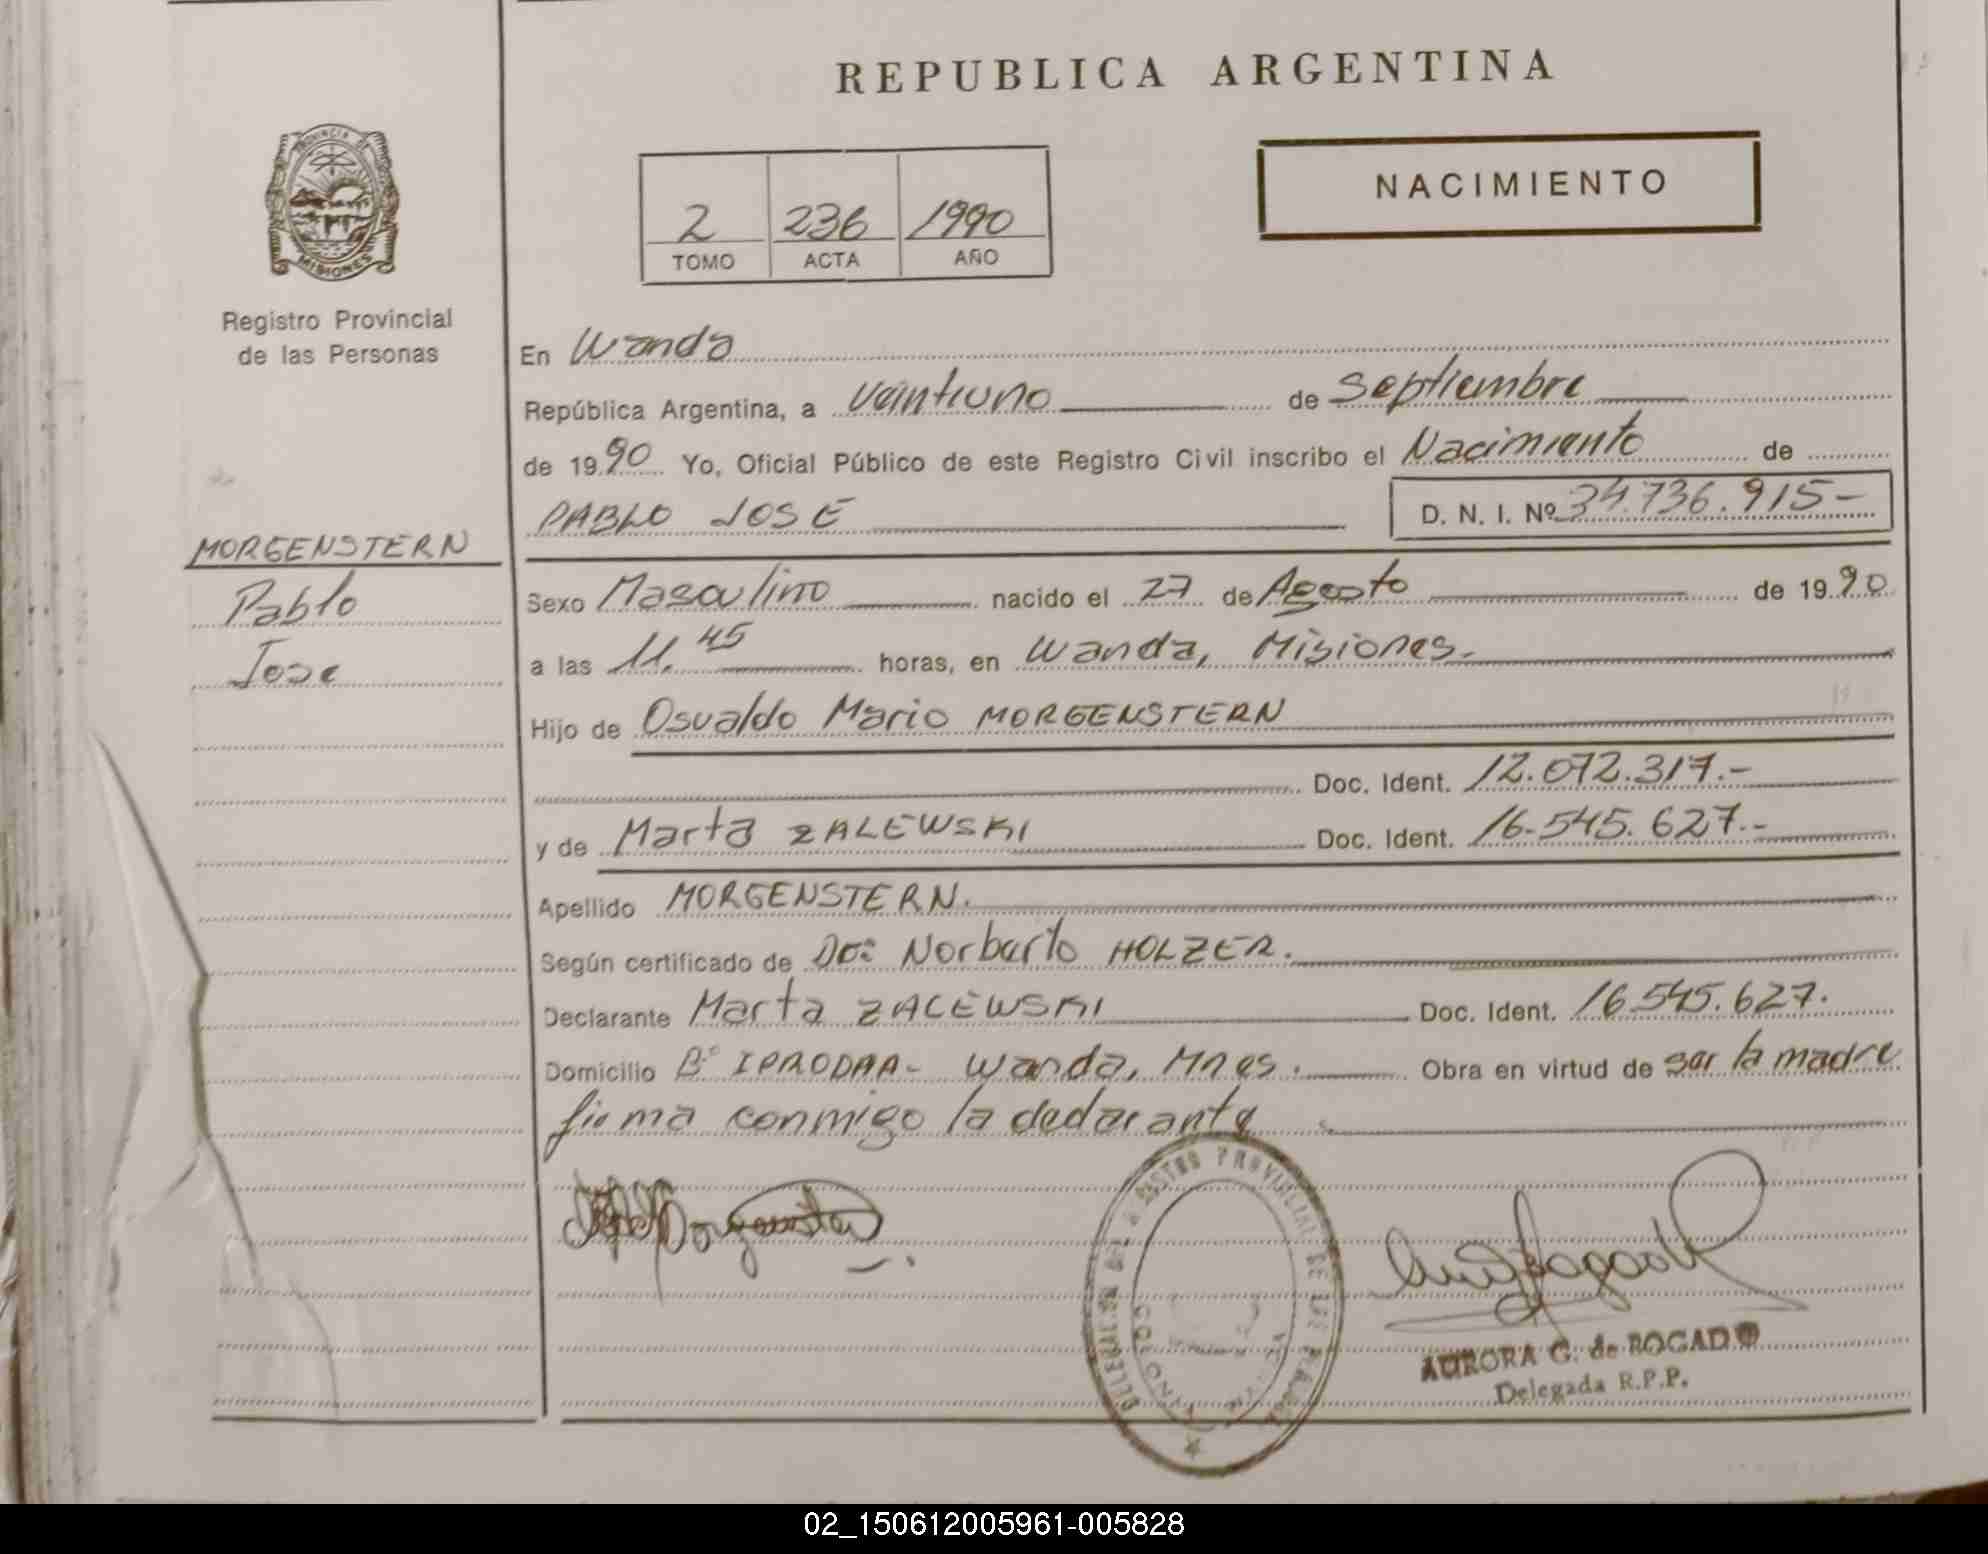 REPUBLICA ARGENTINA
PROVINCIA DE
MISIONES
Registro Provincial
de las Personas
NACIMIENTO
2 236 1990
TOMO ACTA AÑO
En Wanda
República Argentina, a veintiuno de Septiembre
de 1990 Yo, Oficial Público de este Registro Civil inscribo el Nacimiento de
PABLO JOSE D. N. I. Nº 34.736.915-
MORGENSTERN
Pablo
Jose
Sexo Masculino nacido el 27 de Agosto de 1990
a las 11.45 horas, en Wanda, Misiones.
Hijo de Osvaldo Mario MORGENSTERN
Doc. Ident. 12.072.317.-
y de Marta ZALEWSKI Doc. Ident. 16.545.627.-
Apellido MORGENSTERN.
Según certificado de Norberto HOLZER.
Declarante Marta ZALEWSKI Doc. Ident. 16.545.627.
Domicilio Bº IPRODHA- Wanda, Mnes. Obra en virtud de ser la madre
firma conmigo la declarante
PROVINCIAL DE LAS
AURORA G. de ROGADO
Delegada R.P.P.
02_150612005961-005828